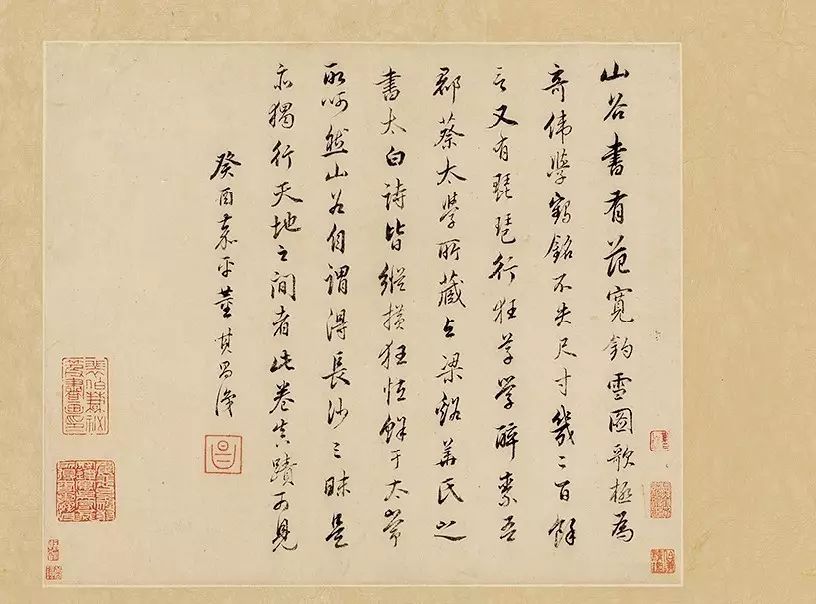 山谷書有范寬釣雪圖歌極為
奇偉學鶴銘不失尺寸幾二百餘
言又有琵琶行狂草學醉素吾
郡蔡太學所藏与梁谿華氏之
書太白詩皆縱横狂怪鮮于太常
所呵然山谷自謂得長沙三昧是
亦獨行天地之間者此卷真蹟可見
癸酉嘉平董其昌識
昌